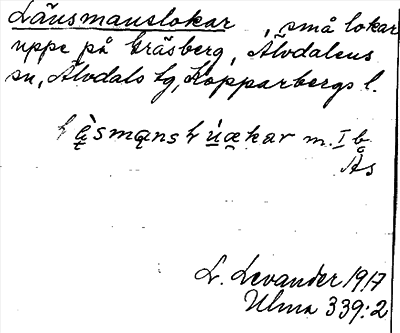 Länsmanslokar, små lokar
uppe på Gräsberg, Älvdalens
sn, Älvdals tg, Kopparbergs l.
m. I b.
Ås
L. Levander 1917
Ulma 339:2